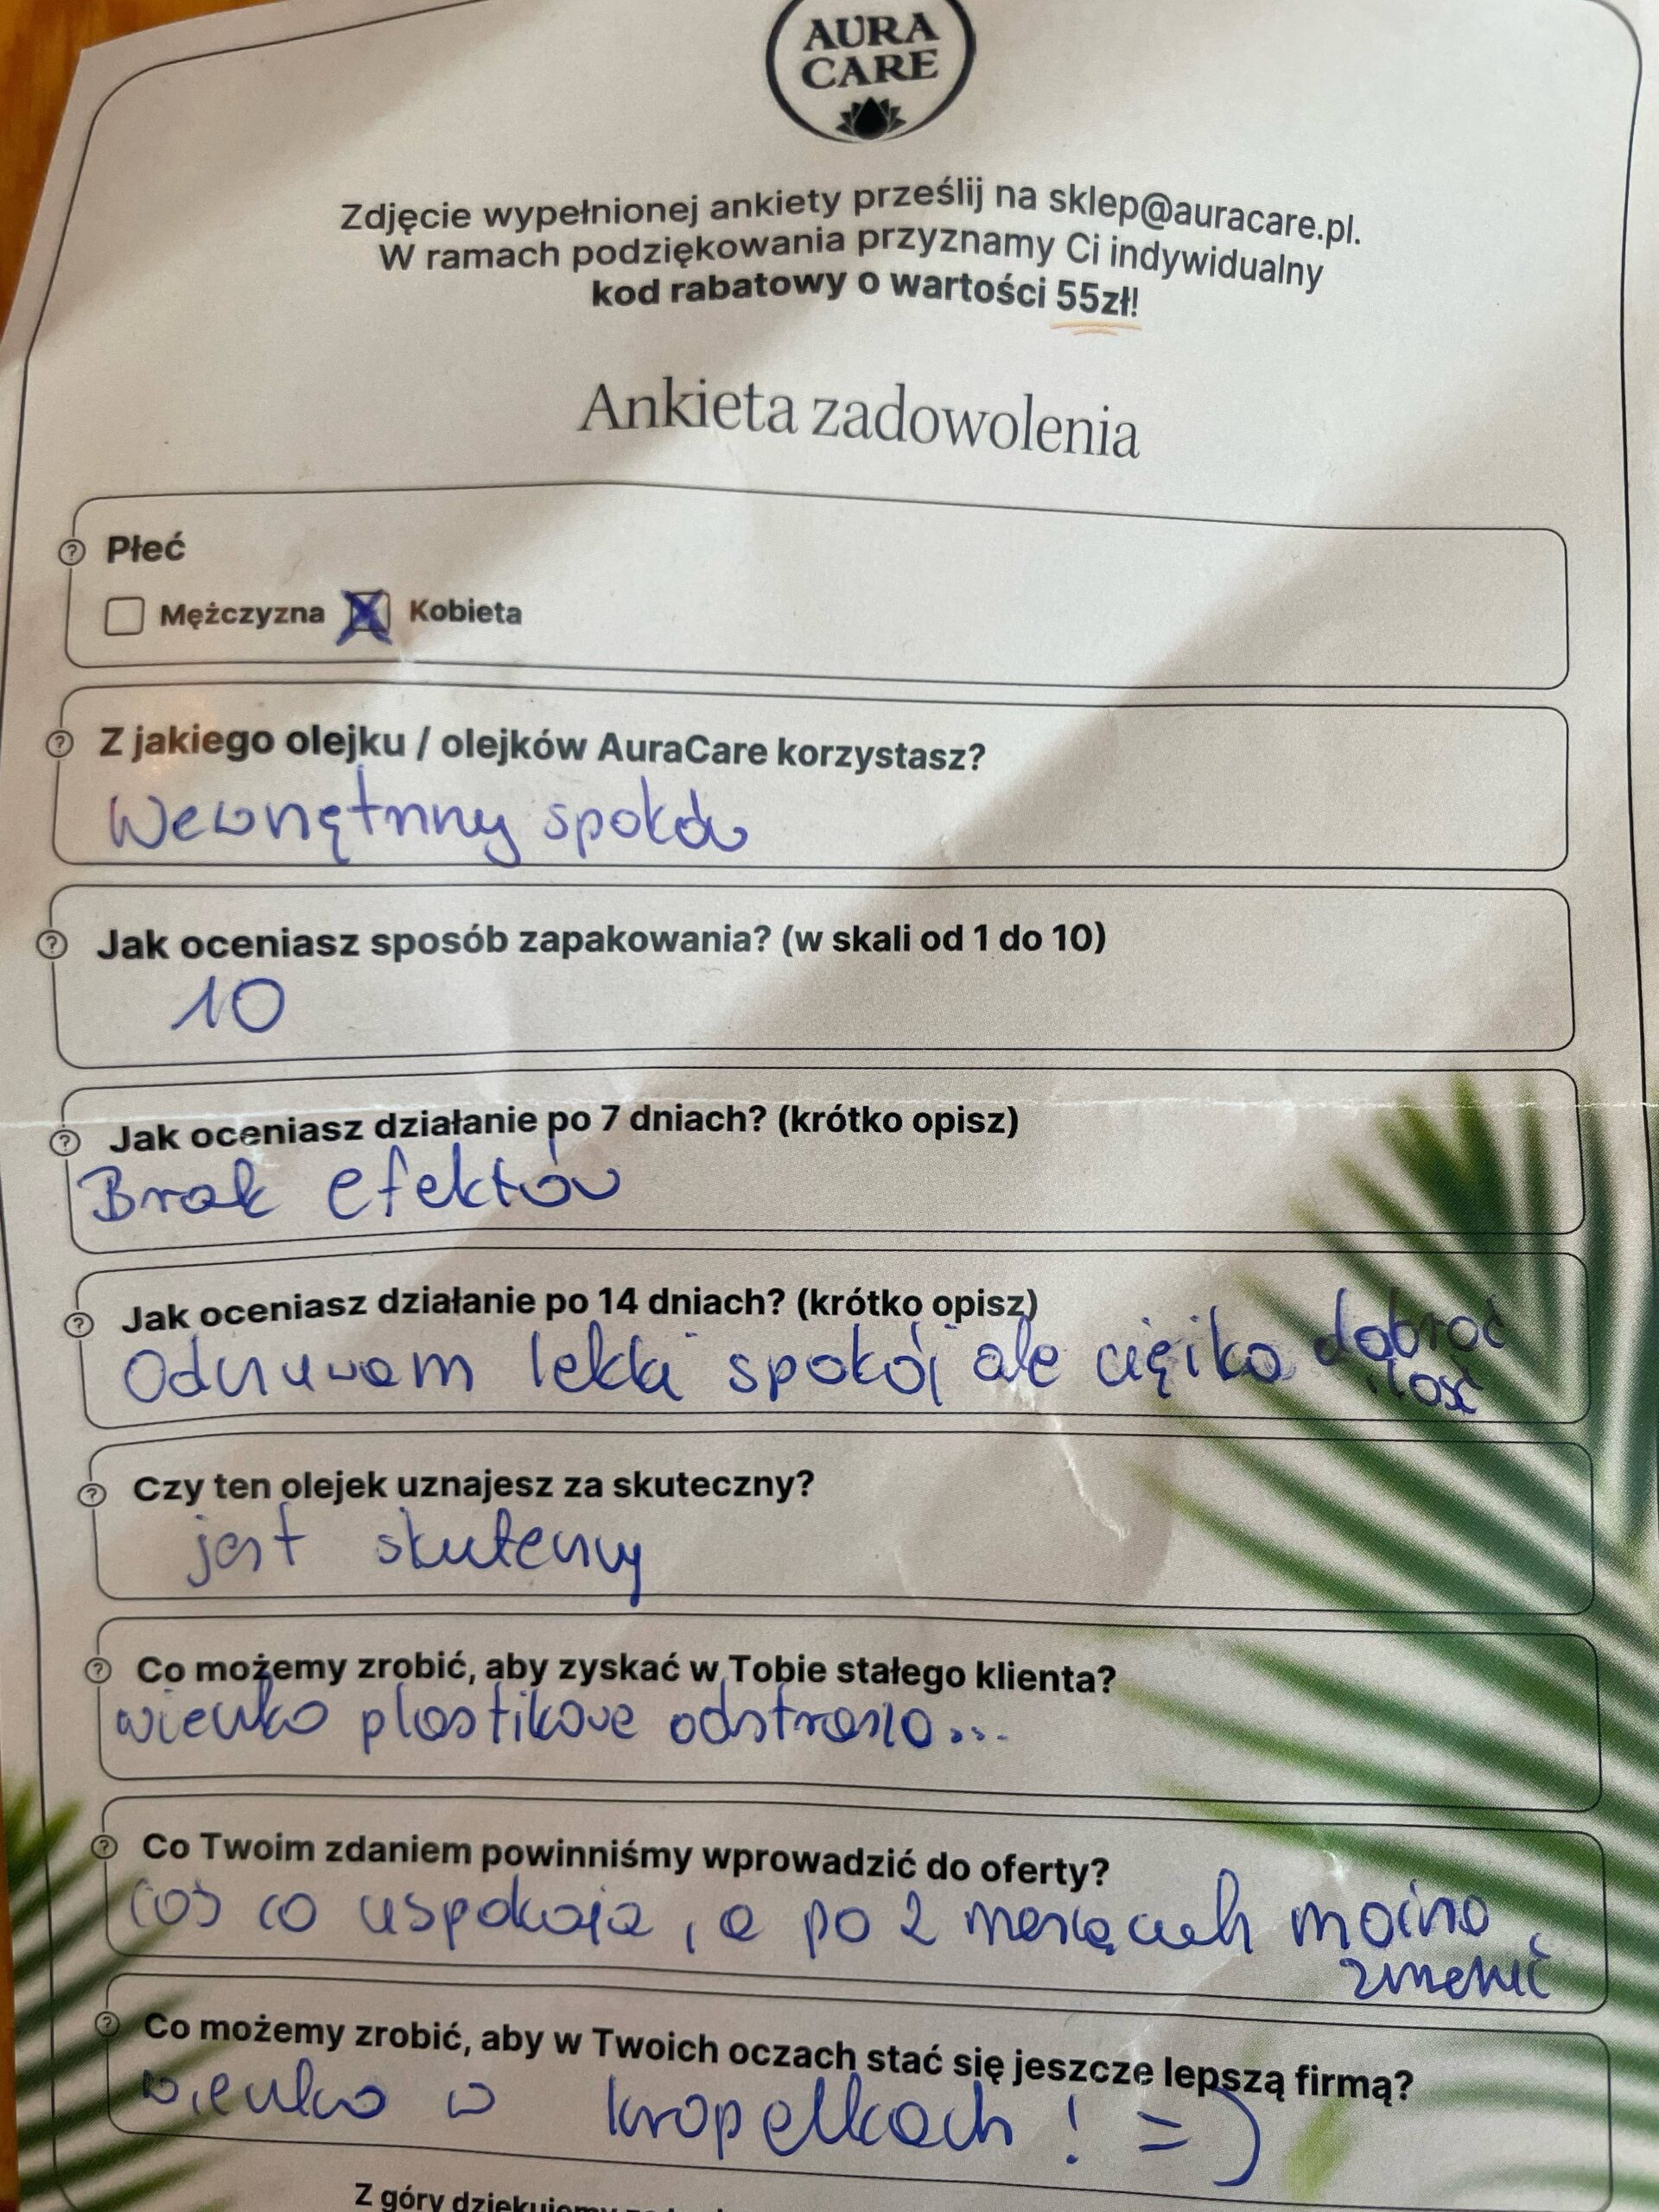 AURA
CARE
Zdjęcie wypełnionej ankiety prześlij na sklep@auracare.pl.
W ramach podziękowania przyznamy Ci indywidualny
kod rabatowy o wartości 55zł!
Ankieta zadowolenia
Płeć
Mężczyzna X Kobieta
Z jakiego olejku / olejków AuraCare korzystasz?
Wewnętrzny spokój
Jak oceniasz sposób zapakowania? (w skali od 1 do 10)
10
Jak oceniasz działanie po 7 dniach? (krótko opisz)
Brak efektów
Jak oceniasz działanie po 14 dniach? (krótko opisz)
Odczuwam lekki spokój ale ciężko dobrać
ilość
Czy ten olejek uznajesz za skuteczny?
jest skuteczny
Co możemy zrobić, aby zyskać w Tobie stałego klienta?
wieczko plastikowe odstrasza...
Co Twoim zdaniem powinniśmy wprowadzić do oferty?
coś co uspokaja, a po 2 miesiącach można
zmienić
Co możemy zrobić, aby w Twoich oczach stać się jeszcze lepszą firmą?
wieczko w kropelkach! =)
Z góry dziękujemy